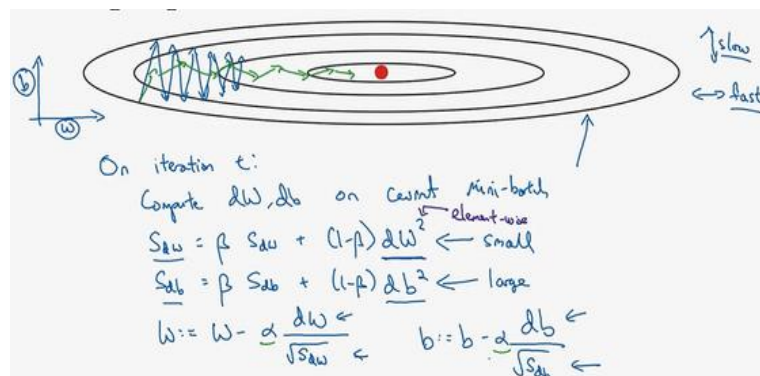 slow
b
fast
w
On iteration t:
Compute dW, db on current mini-batch
element-wise
S_dw = β S_dw + (1-β) dW² ← small
S_db = β S_db + (1-β) db² ← large
W := W - α dW/√S_dw    b := b - α db/√S_db